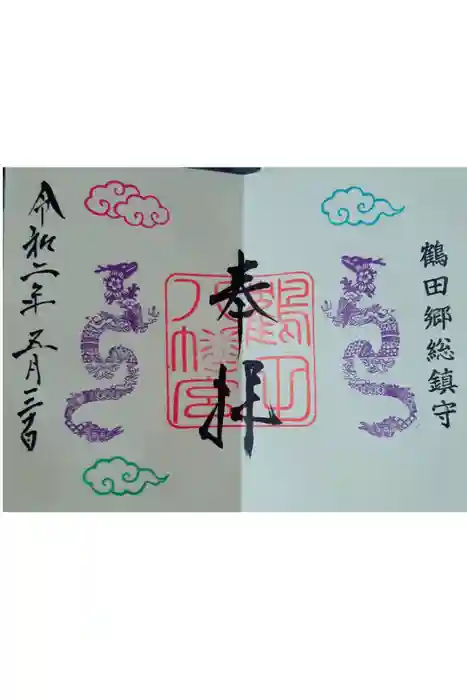 鶴田郷総鎮守
奉拝
鶴田
八幡宮
令和二年五月三十日